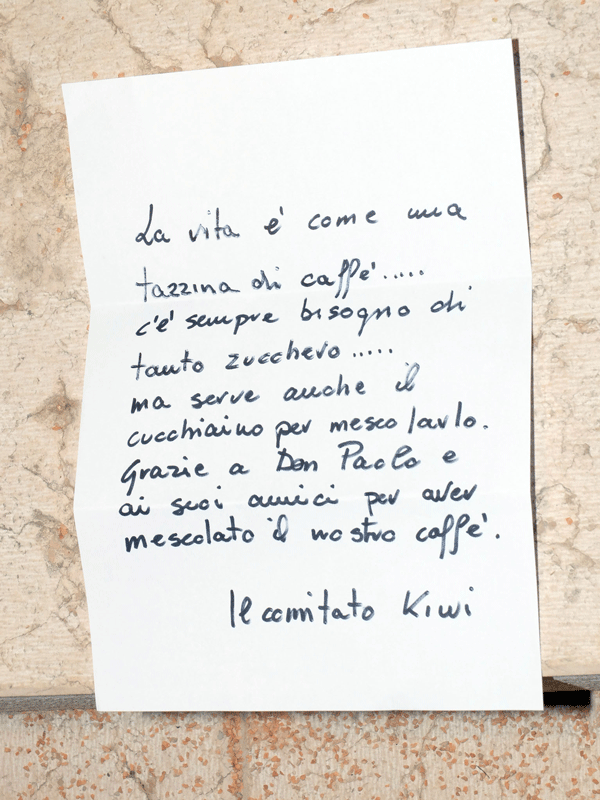 La vita è come una
tazzina di caffè.....
c'è sempre bisogno di
tanto zucchero.....
ma serve anche il
cucchiaino per mescolarlo.
Grazie a Don Paolo e
ai suoi amici per aver
mescolato il nostro caffè.
Il comitato Kiwi